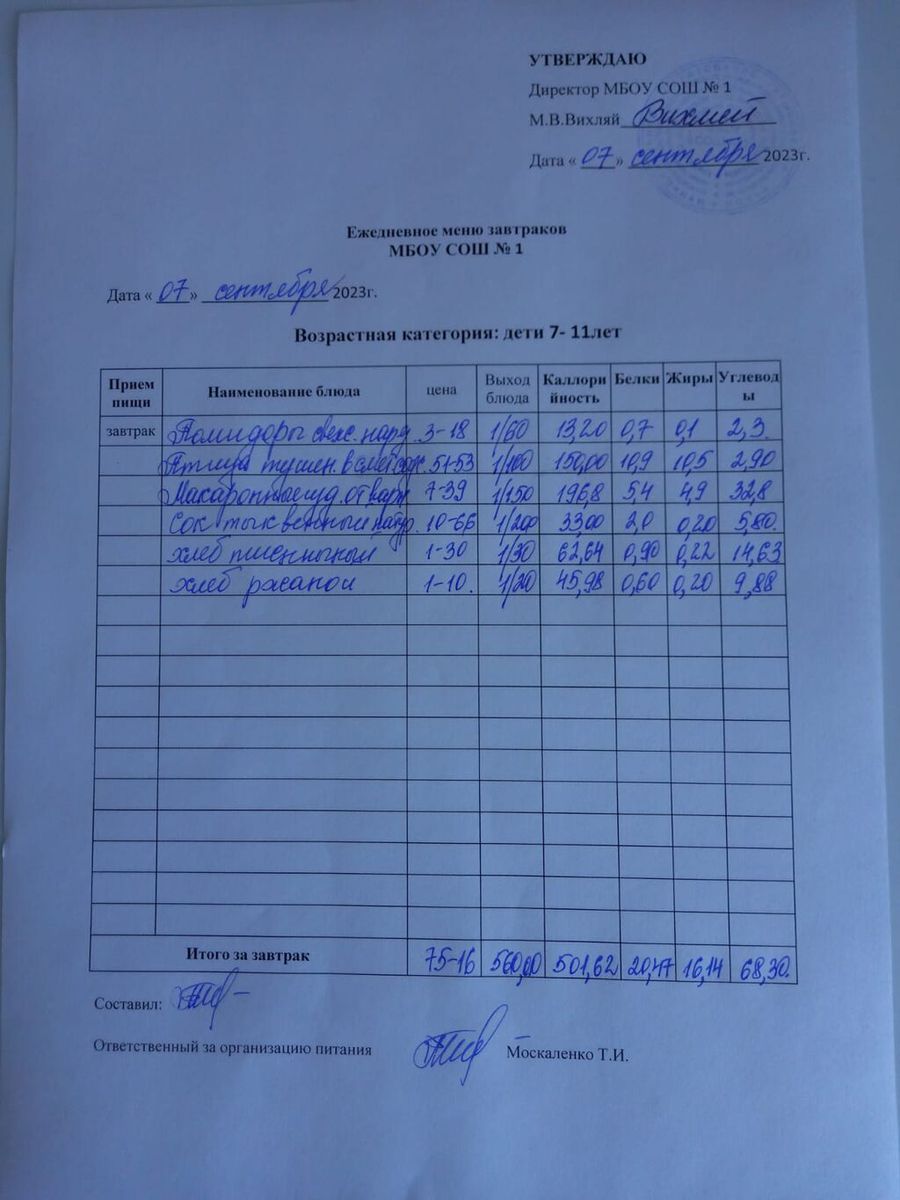 УТВЕРЖДАЮ
Директор МБОУ СОШ № 1
М.В.Вихляй
Дата « 07 » сентября 2023г.
Ежедневное меню завтраков
МБОУ СОШ № 1
Дата « 07 » сентября 2023г.
Возрастная категория: дети 7- 11лет
Прием пищи Наименование блюда цена Выход блюда Каллорийность Белки Жиры Углеводы
завтрак Помидоры свеж. нар. 3-18 1/60 13,20 0,7 0,1 2,3
Птица тушен. в смет. соус. 51-53 1/100 150,00 10,9 10,5 2,90
Макаронные изд. отварн 7-39 1/150 196,8 5,4 4,9 32,8
Сок тыквенный натур. 10-66 1/200 33,00 2,0 0,20 5,80
хлеб пшеничный 1-30 1/30 62,64 0,90 0,22 14,63
хлеб ржаной 1-10 1/20 45,98 0,60 0,20 9,88
Итого за завтрак 75-16 560,00 501,62 20,47 16,14 68,30
Составил:
Ответственный за организацию питания Москаленко Т.И.